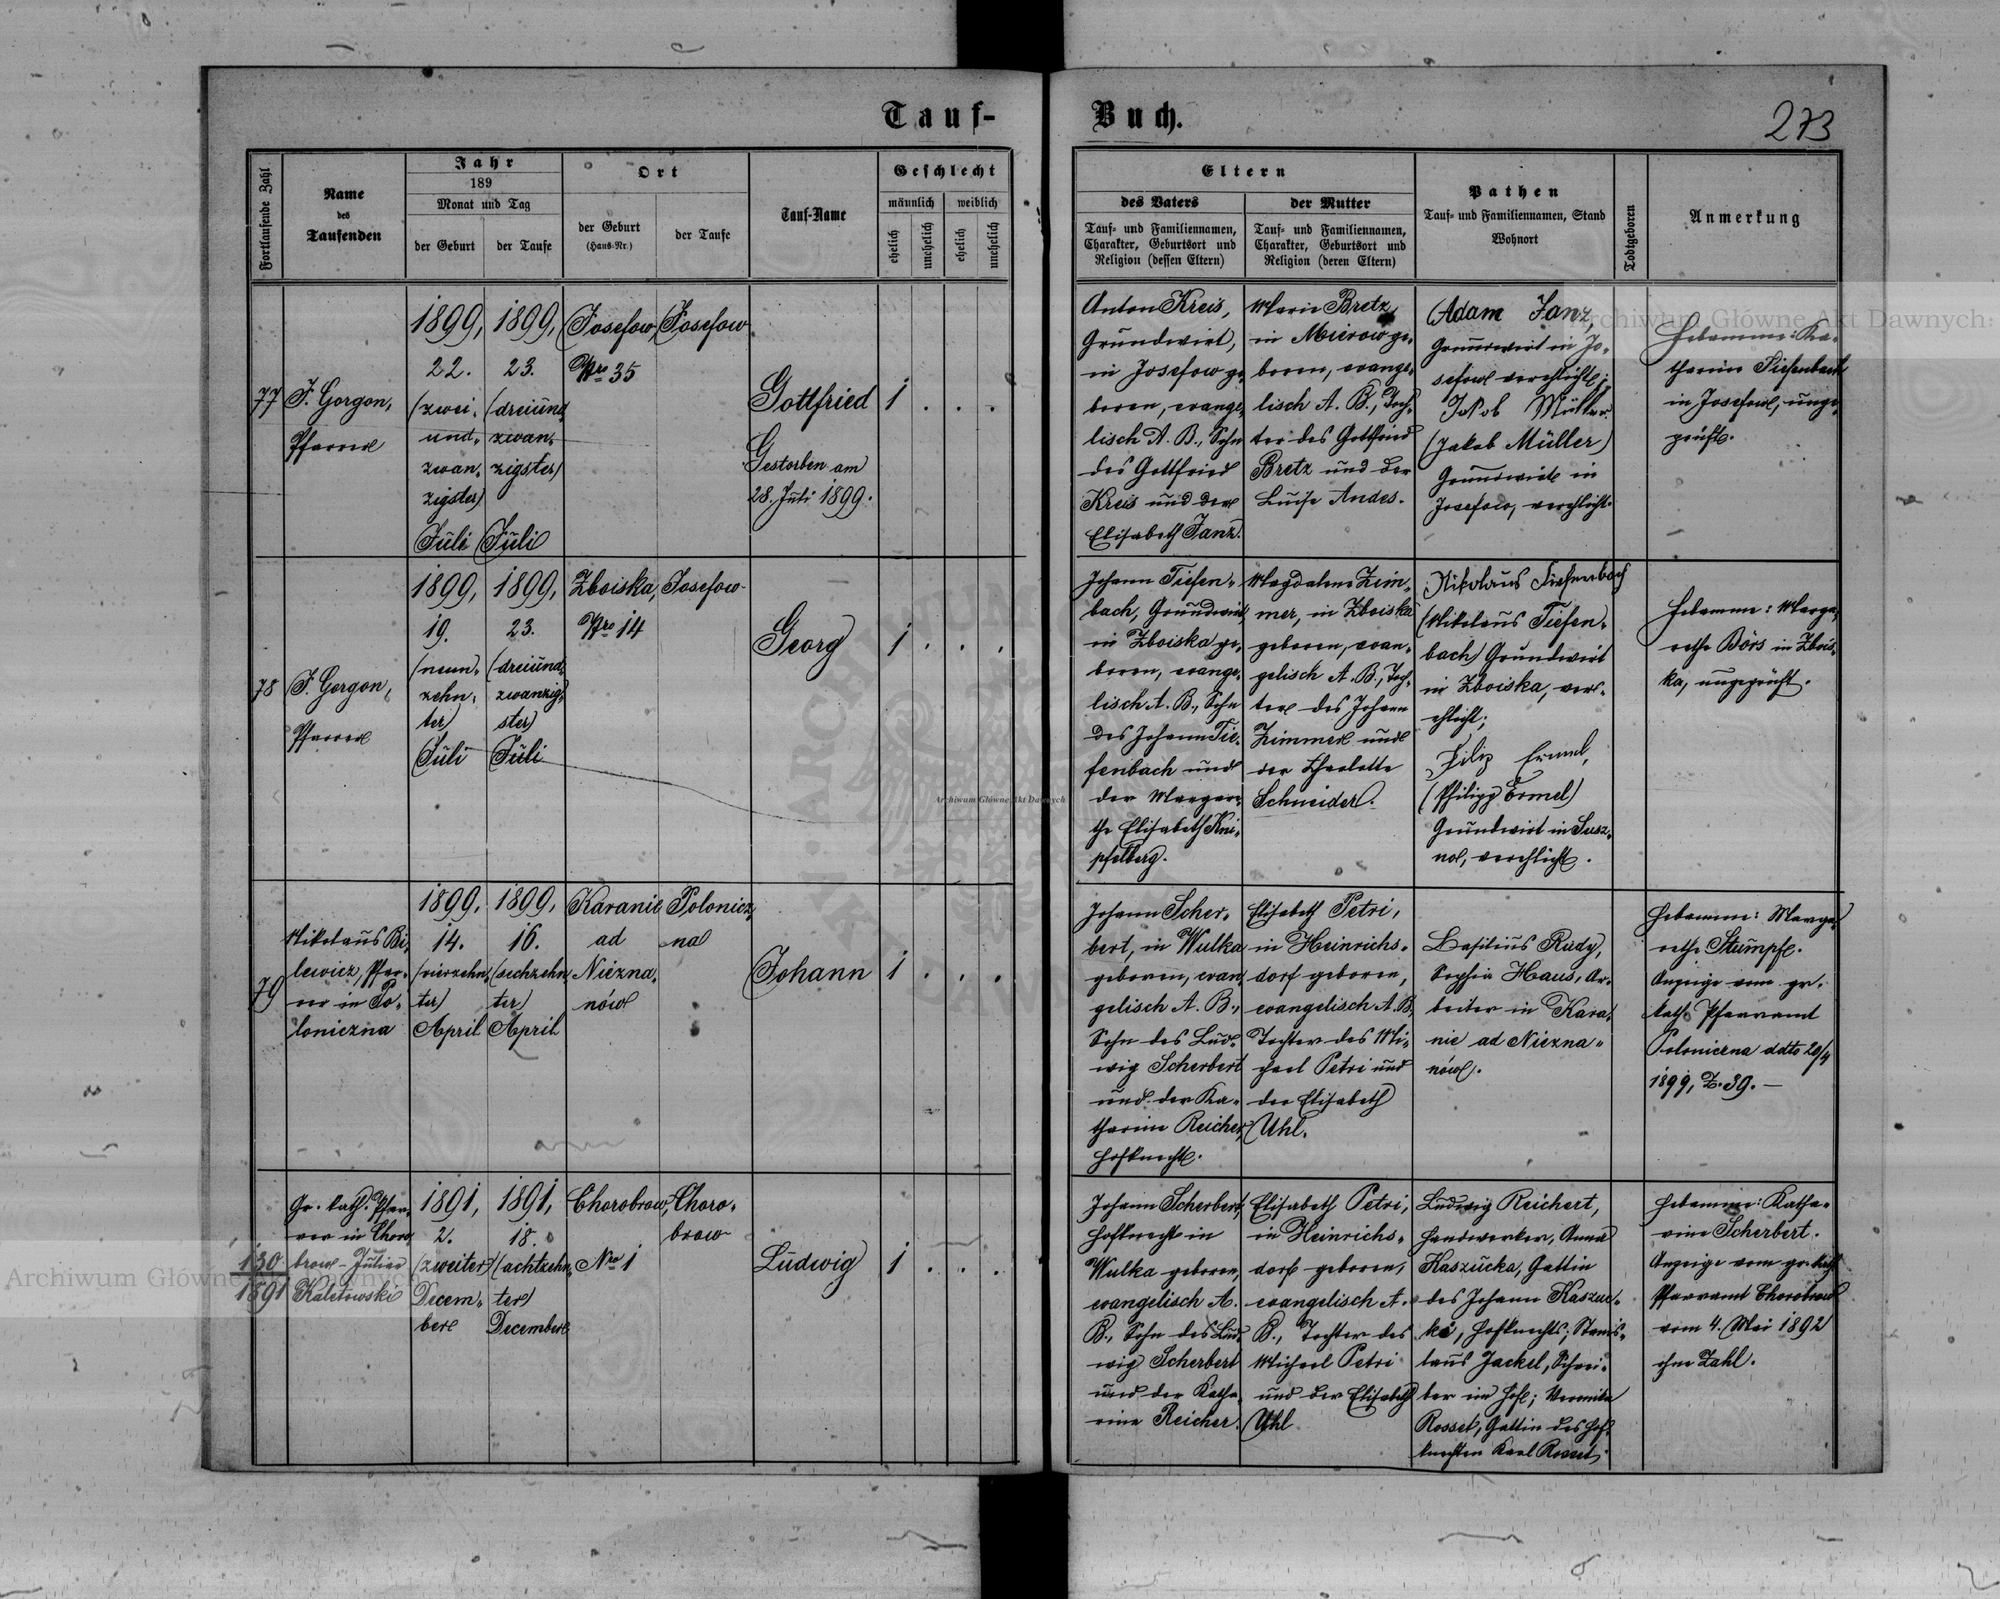 Tauf-
Buch.
273
Fortlaufende Zahl
Name
des
Taufenden
Jahr
189
Monat und Tag
der Geburt
der Taufe
Ort
der Geburt
(Haus-Nr.)
der Taufe
Tauf-Name
Geschlecht
männlich
weiblich
ehelich
unehelich
ehelich
unehelich
Eltern
des Vaters
Tauf- und Familiennamen,
Charakter, Geburtsort und
Religion (dessen Eltern)
der Mutter
Tauf- und Familiennamen,
Charakter, Geburtsort und
Religion (deren Eltern)
Pathen
Tauf- und Familiennamen, Stand
Wohnort
Todtgeboren
Anmerkung
77
J. Gorgon,
Pfarrer
1899,
22.
(zwei-
und-
zwan-
zigster)
Juli
1899,
23.
(dreiund
zwan-
zigster)
Juli
Josefow,
Nro 35
Josefow
Gottfried
Gestorben am
28. Juli 1899.
1 . . .
Anton Kreis,
Grundwirt,
in Josefow ge-
boren, evange-
lisch A. B., Sohn
des Gottfried
Kreis und der
Elisabeth Janz.
Marie Bretz,
in Mierow ge-
boren, evange-
lisch A. B., Toch-
ter des Gottfried
Bretz und der
Luise Andes.
Adam Janz,
Grundwirt in Jo-
sefow verehlicht;
Jakob Müller
(Jakob Müller)
Grundwirt in
Josefow, verehlicht.
Hebamme: Ka-
tharina Tiefenbach
in Josefow, unge-
prüft.
78
J. Gorgon,
Pfarrer
1899,
19.
(neun-
zehn-
ter)
Juli
1899,
23.
(dreiund-
zwanzig-
ster)
Juli
Zboiska,
Nro 14
Josefow
Georg
1 . . .
Johann Tiefen-
bach, Grundwirt
in Zboiska ge-
boren, evange-
lisch A. B., Sohn
des Johann Tie-
fenbach und
der Margare-
the Elisabeth Kni-
pfelberg.
Magdalena Zim-
mer, in Zboiska
geboren, evan-
gelisch A. B., Toch-
ter des Johann
Zimmer und
der Charlotte
Schneider.
Nikolaus Tiefenbach
(Nikolaus Tiefen-
bach) Grundwirt
in Zboiska, ver-
ehlicht;
Filip Ermel,
(Philipp Ermel)
Grundwirt in Susz-
no, verehlicht.
Hebamme: Marga-
rethe Börs in Zbois-
ka, ungeprüft.
79
Nikolaus Bi-
lewicz, Pfar-
rer in Po-
loniczna
1899.
14.
(vierzehn-
ter)
April
1899,
16.
(sechzehn-
ter)
April
Karanie
ad
Niezna-
nów
Polonicz-
na
Johann
1 . . .
Johann Scher-
bert, in Wulka
geboren, evan-
gelisch A. B.,
Sohn des Lud-
wig Scherbert
und der Ka-
tharina Reicher,
Hofknecht.
Elisabeth Petri,
in Heinrichs-
dorf geboren,
evangelisch A. B.
Tochter des Mi-
chael Petri und
der Elisabeth
Uhl.
Basilius Rudy,
Sophia Haus, Ar-
beiter in Kara-
nie ad Niezna-
nów.
Hebamme: Marga-
rethe Stumpf.
Anzeige vom gr.
kath. Pfarramt
Poloniczna ddto 20/4
1899, Z. 39. —
130
1891
Gr. kath. Pfar-
rer in Choro
brow - Julian
Kaletowski
1891,
2.
(zweiter)
Decem-
ber
1891,
18.
(achtzehn-
ter)
December
Chorobrow,
Nro 1
Choro-
brow
Ludwig
1 . . .
Johann Scherbert,
Hofknecht in
Wulka geboren,
evangelisch A.
B., Sohn des Lud-
wig Scherbert
und der Katha-
rina Reicher.
Elisabeth Petri,
in Heinrichs-
dorf geboren,
evangelisch A.
B., Tochter des
Michael Petri
und der Elisabeth
Uhl
Ludwig Reichert,
Handwerker, Anna
Kaszucka, Gattin
des Johann Kaszuc-
ki, Hofknechts; Stanis-
laus Jackel, Schrei-
ber im Hof; Veronika
Rosset, Gattin des Hof-
knechten Karl Rosset.
Hebamme: Katha-
rina Scherbert.
Anzeige vom gr. kath.
Pfarramt Chorobrow
vom 4. Mai 1892
ohne Zahl.
Archiwum Główne Akt Dawnych
Archiwum Główne Akt Dawnych
Archiwum Główne Akt Dawnych